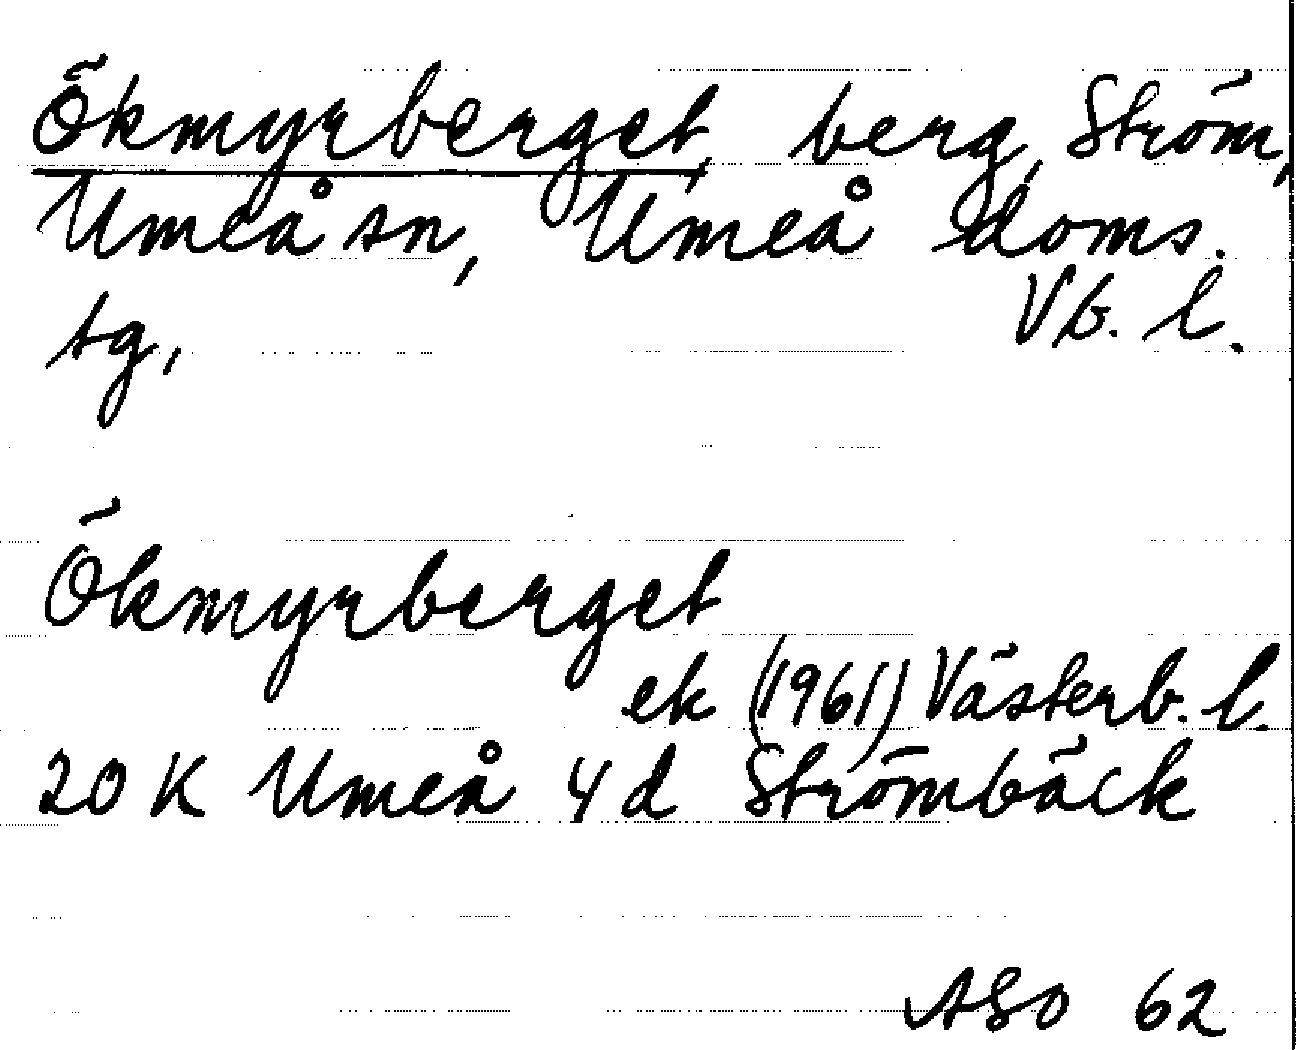 Ökmyrberget, berg, Ström,
Umeå sn, Umeå doms.
sg, Vb. l.
Ökmyrberget
ek (1961) Västerb. l.
20 K Umeå 4d Strömbäck
ASO 62